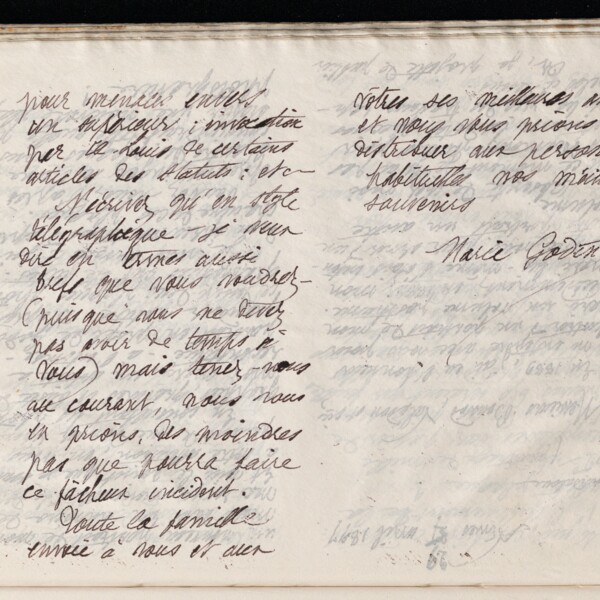 pour menaces envers
un supérieur ; invocation
par M. Louis de certains
articles des Statuts ; etc
N'écrivez qu'en style
télégraphique - je veux
dire en termes aussi
brefs que vous voudrez -
(puisque vous ne devez
pas avoir de temps à
vous) mais tenez-nous
au courant, nous vous
en prions, des moindres
pas que pourra faire
ce fâcheux incident.
Toute la famille
envoie à vous et aux
vôtres ses meilleures
et nous vous prions
distribuer aux
habituelles nos
souvenirs
Marie Godin